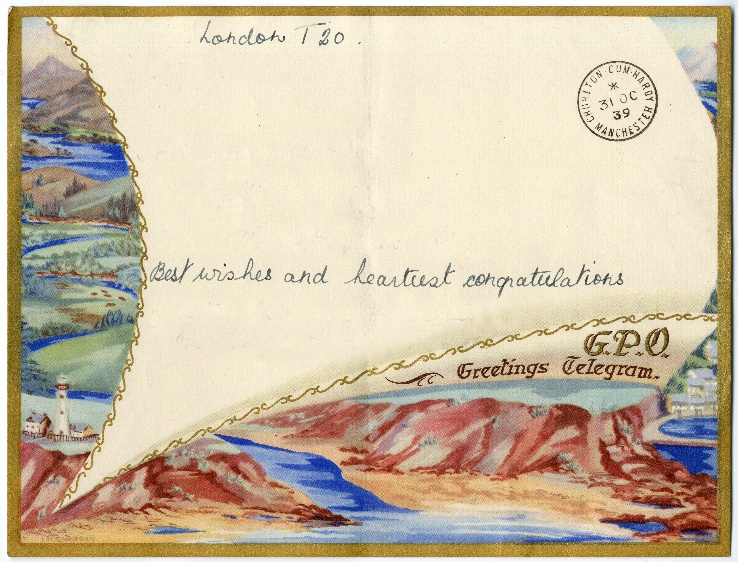 London T 20.
CHORLTON-CUM-HARDY
*
31 OC
39
MANCHESTER
Best wishes and heartiest congratulations
G.P.O.
Greetings Telegram.